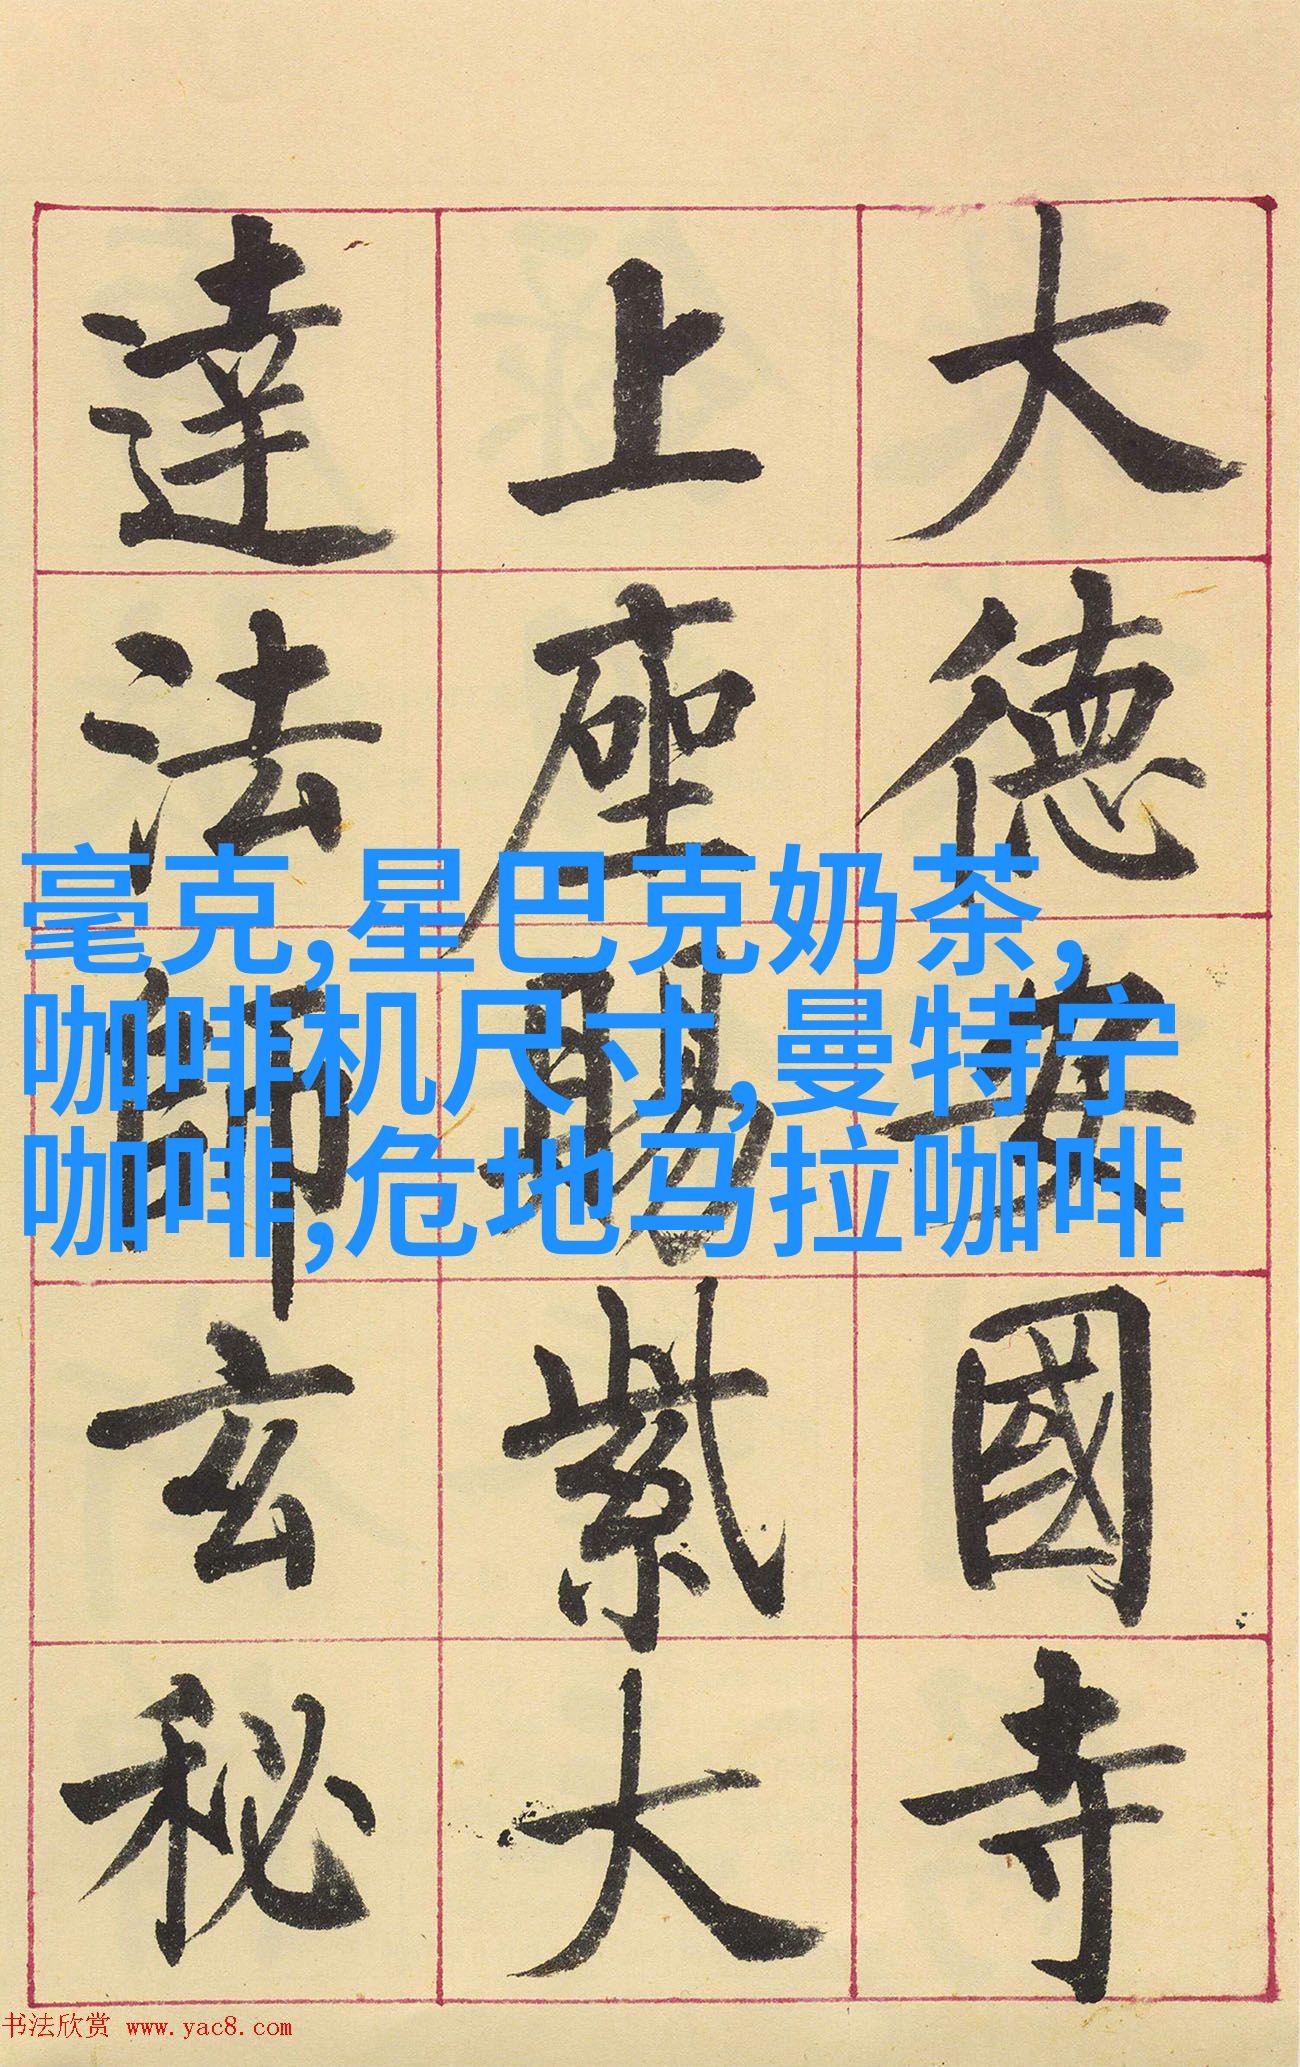 大德安國寺
上座賜紫大
達法師玄秘
毫克,星巴克奶茶,
咖啡机尺寸,曼特宁
咖啡,危地马拉咖啡
书法欣赏 www.yac8.com